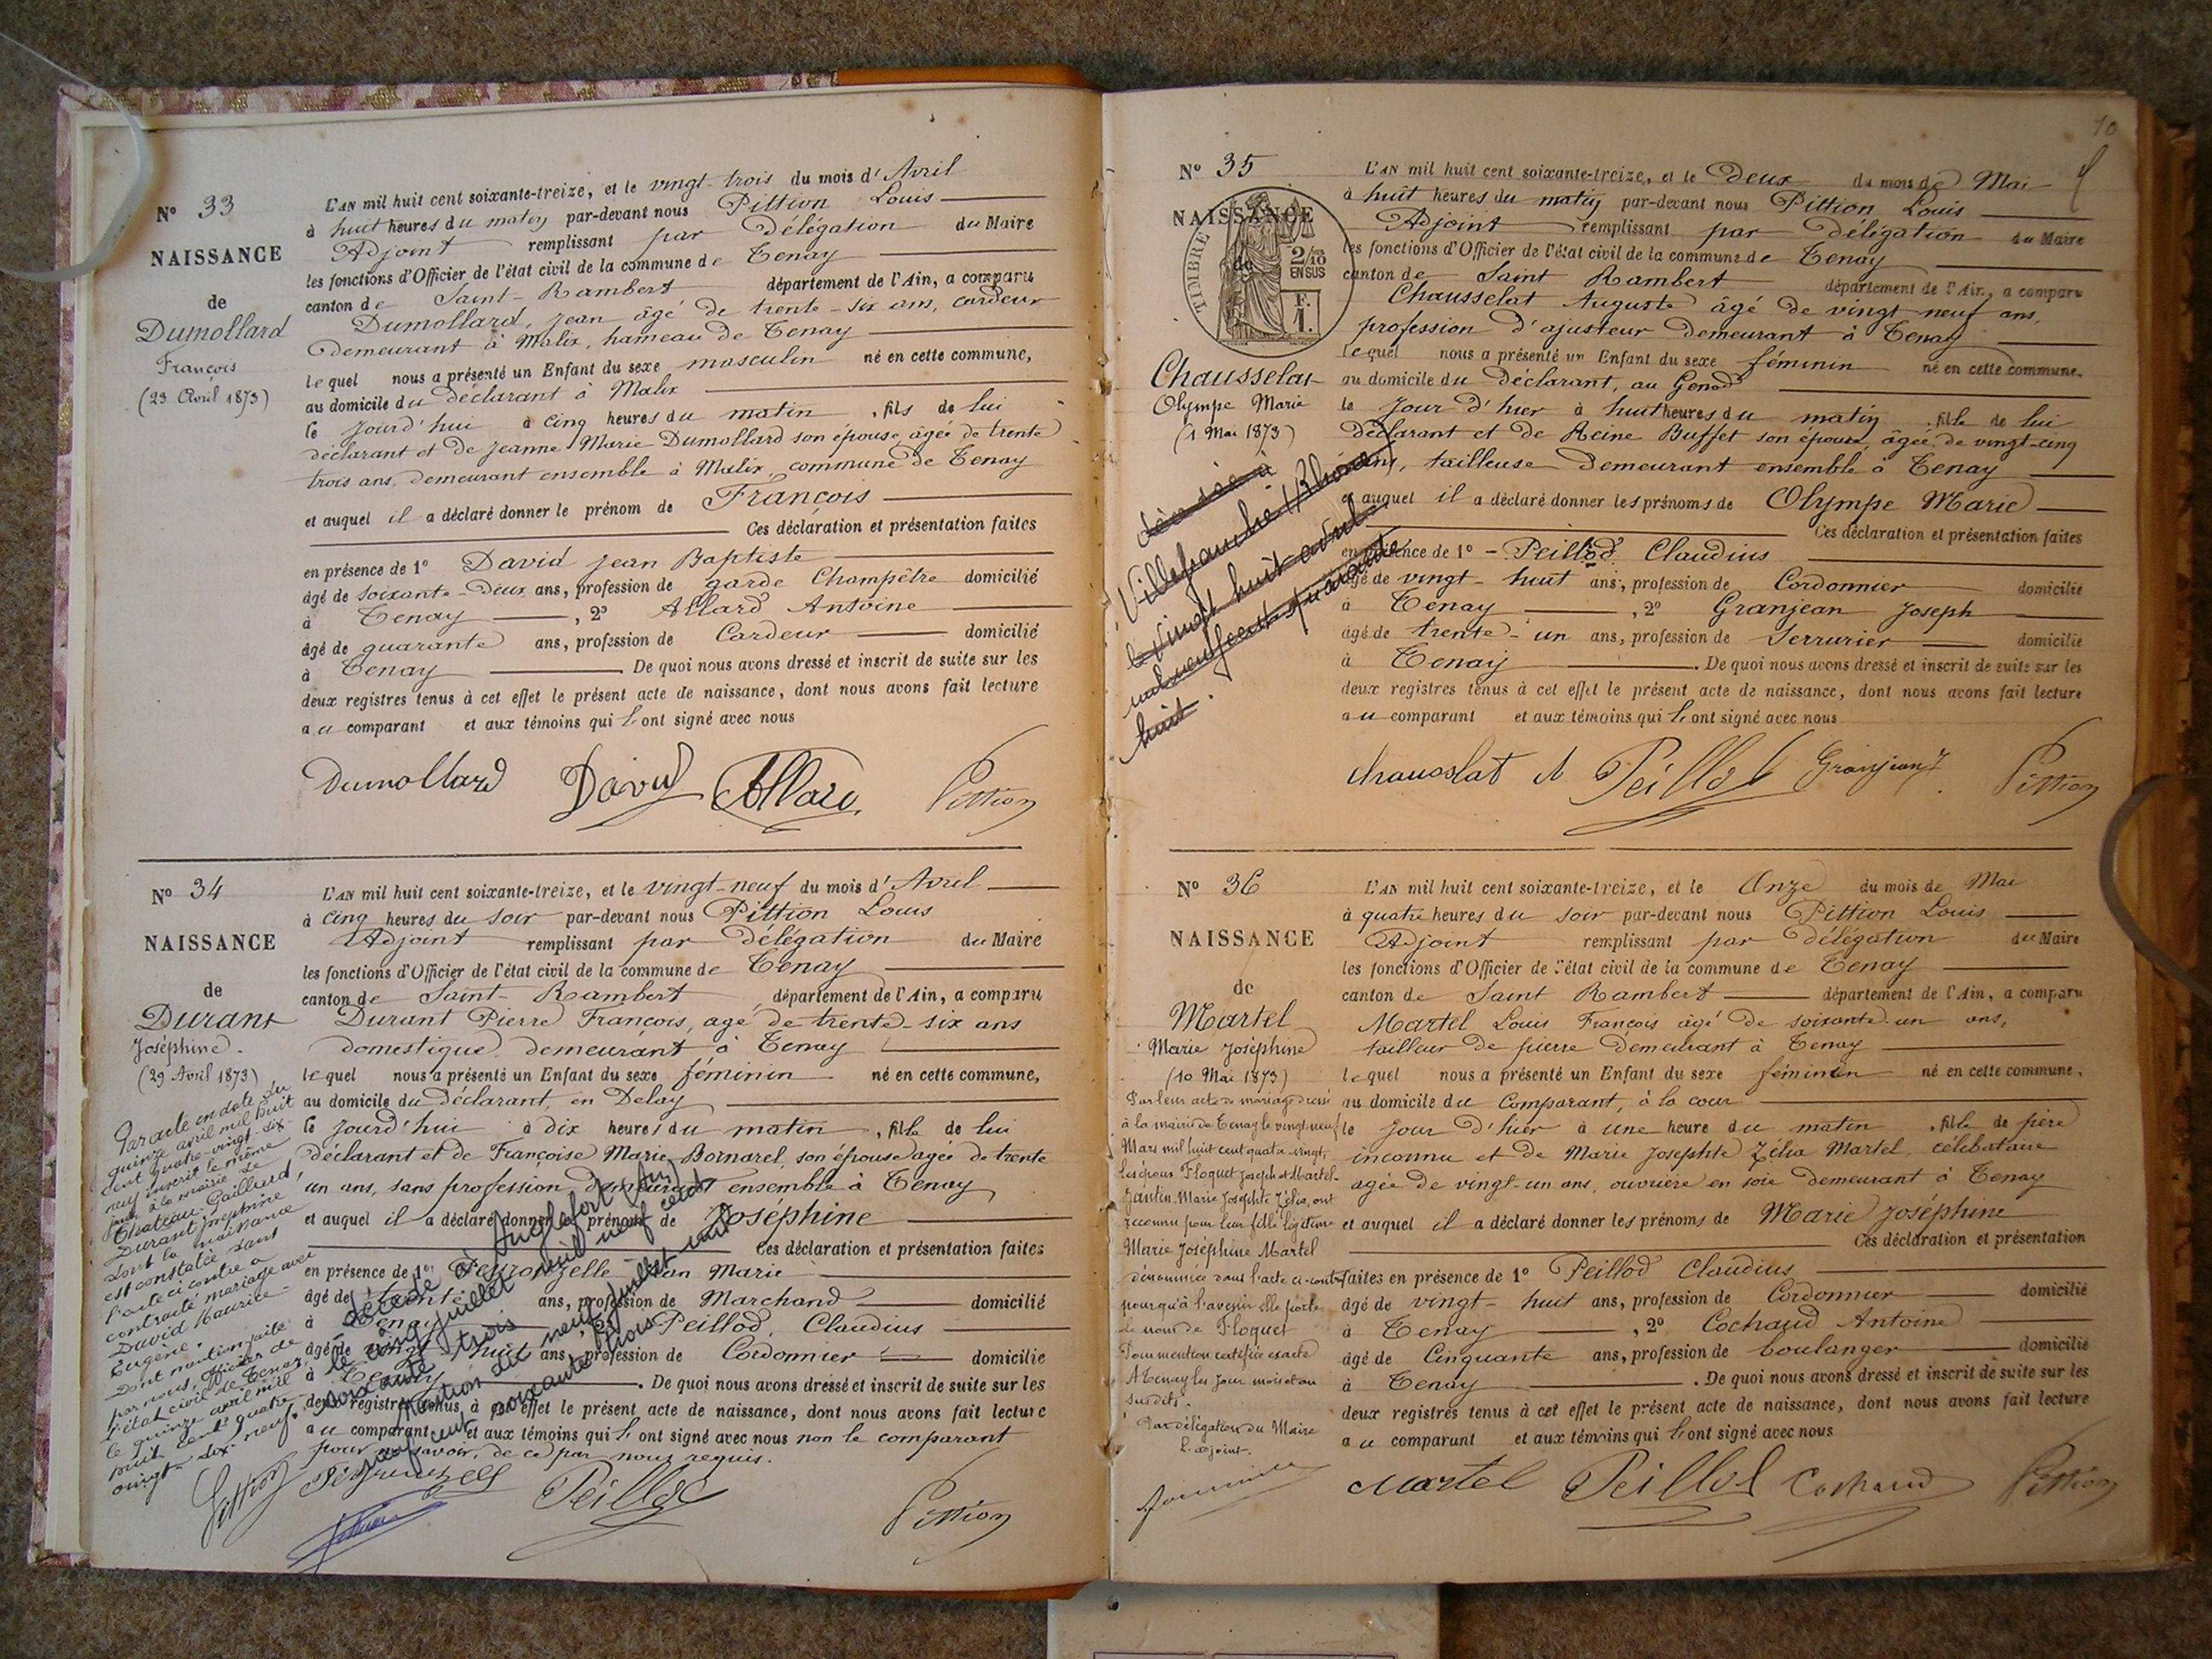 Nº 33
NAISSANCE
de
Dumollard
François
(23 Avril 1873)
L'AN mil huit cent soixante-treize, et le vingt-trois du mois d'Avril
à huit heures du matin par-devant nous Pittion Louis
Adjoint remplissant par Délégation du Maire
les fonctions d'Officier de l'état civil de la commune de Tenay
canton de Saint-Rambert département de l'Ain, a comparu
Dumollard, Jean âgé de trente-six ans, cardeur
demeurant à Malix, hameau de Tenay
lequel nous a présenté un Enfant du sexe masculin né en cette commune,
au domicile du déclarant à Malix
le jourd'hui à cinq heures du matin, fils de lui
déclarant et de Jeanne Marie Dumollard son épouse, âgée de trente
trois ans, demeurant ensemble à Malix, commune de Tenay
et auquel il a déclaré donner le prénom de François
Ces déclaration et présentation faites
en présence de 1º David Jean Baptiste
âgé de soixante-deux ans, profession de garde Champêtre domicilié
à Tenay, 2º Allard Antoine
âgé de quarante ans, profession de Cardeur domicilié
à Tenay. De quoi nous avons dressé et inscrit de suite sur les
deux registres tenus à cet effet le présent acte de naissance, dont nous avons fait lecture
au comparant et aux témoins qui l'ont signé avec nous
Dumollard David Allard Pittion
Nº 34
NAISSANCE
de
Durant
Joséphine.
(29 Avril 1873)
Par acte en date du
quinze avril mil huit
cent quatre-vingt-dix-
neuf inscrit le même
jour à la mairie de
Château-Gaillard,
Durant Joséphine
dont la naissance
est constatée dans
l'acte ci contre a
contracté mariage avec
David Maurice
Eugène.
Dont mention faite
par nous, Officier de
l'état civil de Tenay,
le quinze avril mil
huit cent quatre
vingt-dix-neuf.
L'AN mil huit cent soixante-treize, et le vingt-neuf du mois d'Avril
à cinq heures du soir par-devant nous Pittion Louis
Adjoint remplissant par Délégation du Maire
les fonctions d'Officier de l'état civil de la commune de Tenay
canton de Saint-Rambert département de l'Ain, a comparu
Durant Pierre François, agé de trente-six ans
domestique demeurant à Tenay
lequel nous a présenté un Enfant du sexe féminin né en cette commune,
au domicile du déclarant, en Delay
le jourd'hui à dix heures du matin, fille de lui
déclarant et de Françoise Marie Bornarel, son épouse agée de trente
un ans, sans profession demeurant ensemble à Tenay
et auquel il a déclaré donner le prénom de Joséphine
Ces déclaration et présentation faites
en présence de 1º Peyronzelle Jean Marie
âgé de trente ans, profession de Marchand domicilié
à Tenay, 2º Peillod, Claudius
âgé de vingt-huit ans, profession de Cordonnier domicilié
à Tenay. De quoi nous avons dressé et inscrit de suite sur les
deux registres tenus à cet effet le présent acte de naissance, dont nous avons fait lecture
au comparant et aux témoins qui l'ont signé avec nous non le comparant
pour ne savoir, de ce par nous requis.
Décédée à Anglefort (Ain)
le cinq juillet mil neuf cent
soixante trois
Mention du neuf juillet mil
neuf cent soixante trois
Peillod Pittion
Nº 35
NAISSANCE
de
TIMBRE
2/10
EN SUS
F.
1.
Chausselat
Olympe Marie
(1 Mai 1873)
décédée à
Villefranche (Rhône)
le vingt huit avril
mil neuf cent quarante
huit.
10
L'AN mil huit cent soixante-treize, et le Deux du mois de Mai
à huit heures du matin par-devant nous Pittion Louis
Adjoint remplissant par délégation du Maire
les fonctions d'Officier de l'état civil de la commune de Tenay
canton de Saint Rambert département de l'Ain, a comparu
Chausselat Auguste âgé de vingt neuf ans,
profession d'ajusteur demeurant à Tenay
lequel nous a présenté un Enfant du sexe féminin né en cette commune.
au domicile du déclarant, au Genod
le jour d'hier à huit heures du matin, fille de lui
déclarant et de Reine Buffet son épouse, âgée de vingt-cinq
ans, tailleuse demeurant ensemble à Tenay
et auquel il a déclaré donner les prénoms de Olympe Marie
Ces déclaration et présentation faites
en présence de 1º - Peillod Claudius
âgé de vingt-huit ans, profession de Cordonnier domicilié
à Tenay, 2º Granjean Joseph
âgé de trente-un ans, profession de Serrurier domicilié
à Tenay. De quoi nous avons dressé et inscrit de suite sur les
deux registres tenus à cet effet le présent acte de naissance, dont nous avons fait lecture
au comparant et aux témoins qui l'ont signé avec nous
chausslat A Peillod Granjean J Pittion
Nº 36
NAISSANCE
de
Martel
Marie Joséphine
(10 Mai 1873)
Par leur acte de mariage dressé
à la mairie de Tenay le vingt-neuf
Mars mil huit cent quatre-vingt,
les époux Floquet Joseph et Martel-
Jantin Marie Josephte Zélia, ont
reconnu pour leur fille légitime
Marie Joséphine Martel
dénommée dans l'acte ci-contre
pour qu'à l'avenir elle porte
le nom de Floquet
Pour mention certifiée exacte
A Tenay les jour mois et an
susdits.
Par délégation du Maire
L'adjoint.
L'AN mil huit cent soixante-treize, et le Onze du mois de Mai
à quatre heures du soir par-devant nous Pittion Louis
Adjoint remplissant par délégation du Maire
les fonctions d'Officier de l'état civil de la commune de Tenay
canton de Saint Rambert département de l'Ain, a comparu
Martel Louis François âgé de soixante-un ans,
tailleur de pierre demeurant à Tenay
lequel nous a présenté un Enfant du sexe féminin né en cette commune,
au domicile du Comparant, à la cour
le jour d'hier à une heure du matin, fille de père
inconnu et de Marie Josephte Zélia Martel, célibataire
agée de vingt-un ans, ouvrière en soie demeurant à Tenay
et auquel il a déclaré donner les prénoms de Marie Joséphine
Ces déclaration et présentation
faites en présence de 1º Peillod Claudius
âgé de vingt-huit ans, profession de Cordonnier domicilié
à Tenay, 2º Cochaud Antoine
âgé de Cinquante ans, profession de boulanger domicilié
à Tenay. De quoi nous avons dressé et inscrit de suite sur les
deux registres tenus à cet effet le présent acte de naissance, dont nous avons fait lecture
au comparant et aux témoins qui l'ont signé avec nous
Martel Peillod Cochaud Pittion